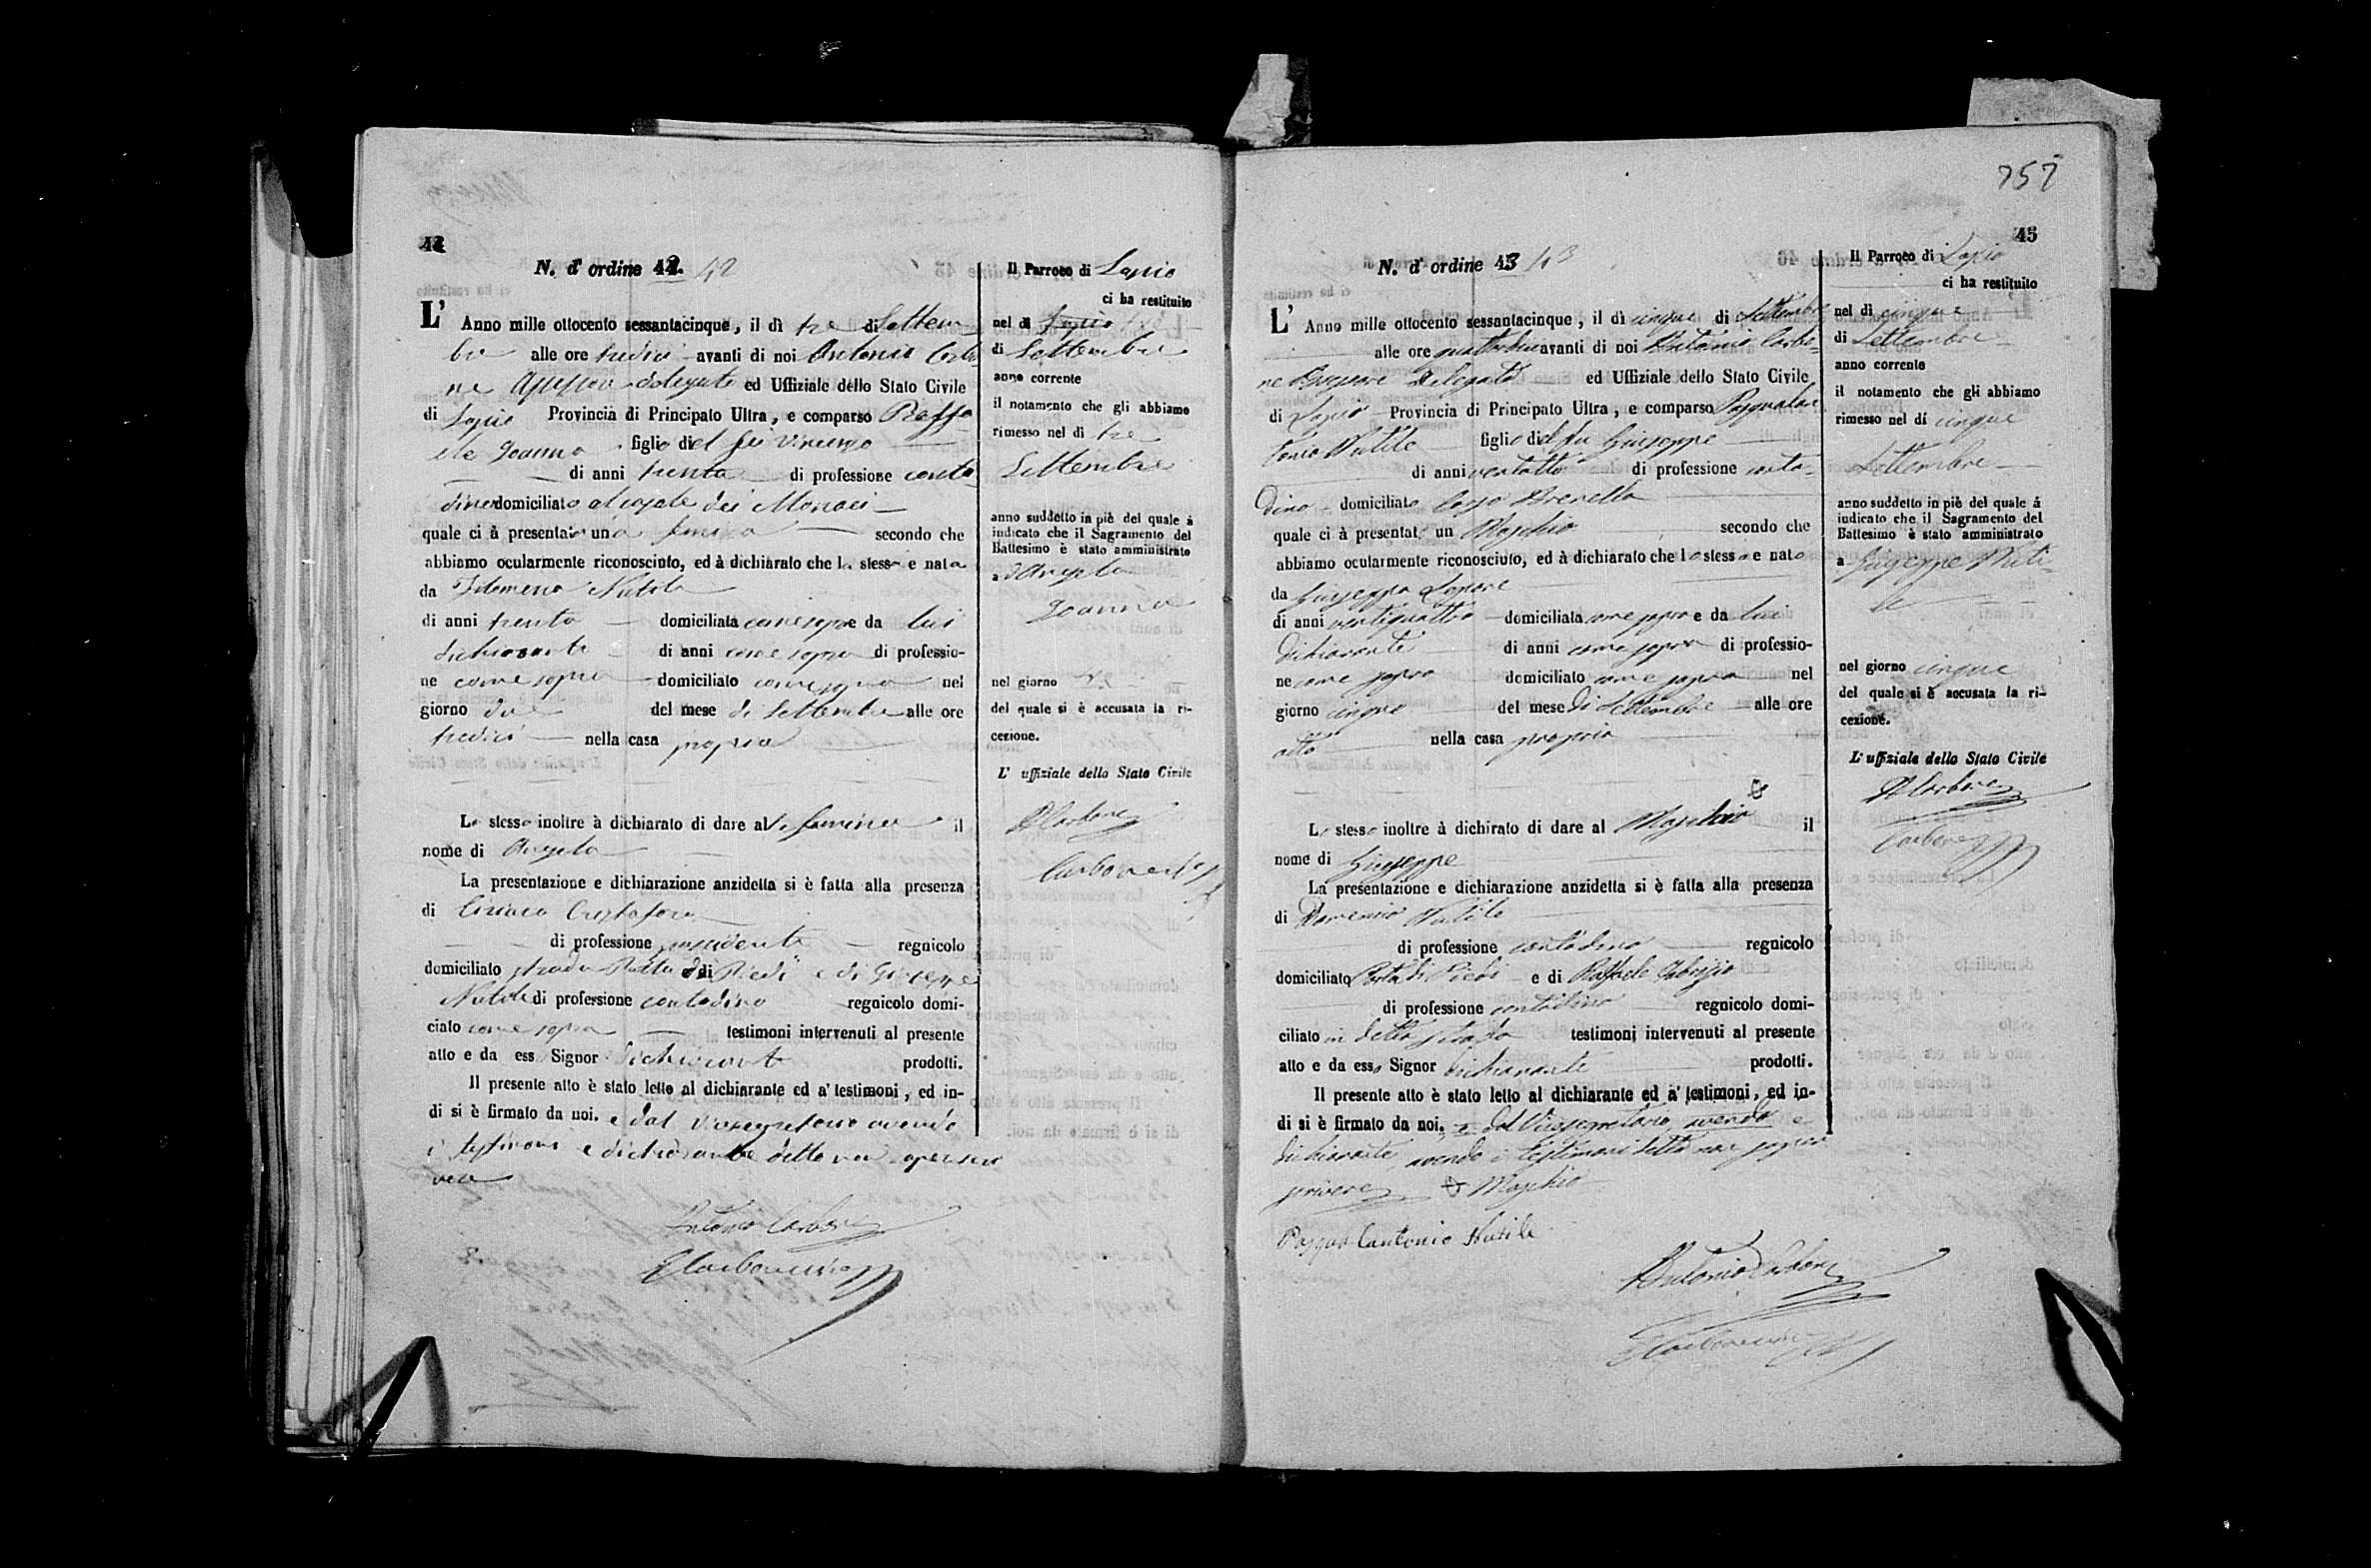 42
N. d' ordine 42. 42
L' Anno mille ottocento sessantacinque, il dì tre di Settem
bre alle ore tredici avanti di noi Antonio Carbo
ne Assessore delegato ed Uffiziale dello Stato Civile
di Lapio Provincia di Principato Ultra, e comparso Raffa
ele Joanna figlio del fu Vincenzo
di anni trenta di professione conta
dino domiciliato al casale dei Monaci
quale ci à presentato una femina secondo che
abbiamo ocularmente riconosciuto, ed à dichiarato che la stessa e nata
da Filomena Nutola
di anni trenta domiciliata come sopra e da lui
dichiarante di anni come sopra di professio-
ne come sopra domiciliato come sopra nel
giorno due del mese di Settembre alle ore
tredici nella casa propria
Lo stesso inoltre à dichiarato di dare alla femina il
nome di Angela
La presentazione e dichiarazione anzidetta si è fatta alla presenza
di Ciriaco
di professione possidente regnicolo
domiciliato strada Porta di Piedi e di Giuseppe
di professione contadino regnicolo domi-
ciato come sopra testimoni intervenuti al presente
atto e da ess Signor dichiarante prodotti.
Il presente atto è stato letto al dichiarante ed a' testimoni, ed in-
di si è firmato da noi. e dal Vicesegretario avendo
i testimoni e dichiarante detto non saper scri
vere
Antonio Carbone
Il Parroco di Lapio
ci ha restituito
nel dì
di Settembre
anno corrente
il notamento che gli abbiamo
rimesso nel dì tre
Settembre
anno suddetto in piè del quale á
indicato che il Sagramento del
Battesimo è stato amministrato
a Angela
Joanna
nel giorno
del quale si è accusata la ri-
cezione.
L' uffiziale dello Stato Civile
A Carbone
757
45
N. d' ordine 43 43
L' Anno mille ottocento sessantacinque, il dì cinque di Settembre
alle ore quattordici avanti di noi Antonio Carbo-
ne Assessore Delegato ed Uffiziale dello Stato Civile
di Lapio Provincia di Principato Ultra, e comparso Pasqualan
tonio Nutile figlio del fu Giuseppe
di anni ventotto di professione conta-
dino domiciliato
quale ci à presentat un Maschio secondo che
abbiamo ocularmente riconosciuto, ed à dichiarato che lo stesso e nato
da Giuseppa Lepore
di anni ventiquattro domiciliata come sopra e da lui
dichiarante di anni come sopra di professio-
ne come sopra domiciliato come sopra nel
giorno cinque del mese di Settembre alle ore
otto nella casa propria
Lo stesso inoltre à dichirato di dare al Maschio il
nome di Giuseppe
La presentazione e dichiarazione anzidetta si è fatta alla presenza
di Domenico Nutile
di professione contadino regnicolo
domiciliato Porta di Piedi e di Raffaele Fabrizio
di professione contadino regnicolo domi-
ciliato in detta strada testimoni intervenuti al presente
atto e da esso Signor dichiarante prodotti.
Il presente atto è stato letto al dichiarante ed a' testimoni, ed in-
di si è firmato da noi. e dal Vicesegretario, avendo e
dichiarante, avendo i testimoni detto non sapere
scrivere Maschio
Pasqualantonio Nutile
Antonio Carbone
Il Parroco di Lapio
ci ha restituito
nel dì cinque
di Settembre
anno corrente
il notamento che gli abbiamo
rimesso nel dí cinque
Settembre
anno suddetto in piè del quale á
indicato che il Sagramento del
Battesimo è stato amministrato
a Giuseppe Nuti-
le
nel giorno cinque
del quale si è accusata la ri-
cezione.
L' uffiziale dello Stato Civile
A Carbone